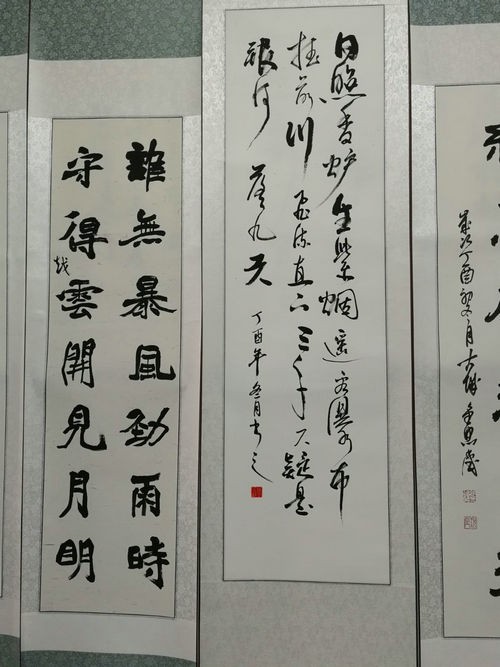 歲次丁酉
日照香炉生紫烟遥看瀑布
挂前川飞流直下三千尺疑是
银河落九天
丁酉年冬月书之
無暴風勁雨時
守得雲開見月明